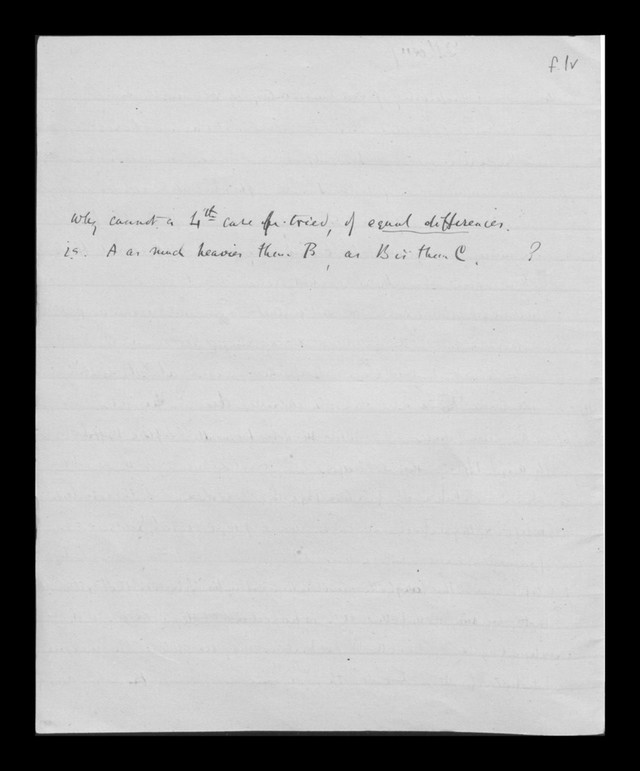 f. 1v
Why cannot a 4th case be tried, of equal differences.
i.e. A as much heavier than B, as B is than C. ?